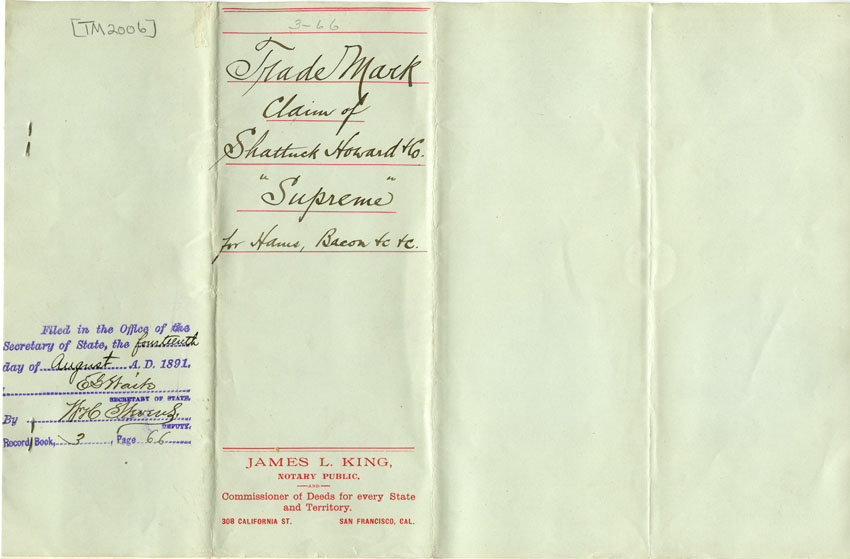 [TM2006]
Filed in the Office of the
Secretary of State, the fourteenth
day of August A. D. 1891.
E G Waite
SECRETARY OF STATE.
By Wm C Stevens
DEPUTY.
Record Book, 3, Page 66
3-66
Trade Mark
Claim of
Shattuck Howard & Co.
"Supreme"
for Hams, Bacon &c &c.
JAMES L. KING,
NOTARY PUBLIC,
AND
Commissioner of Deeds for every State
and Territory.
308 CALIFORNIA ST. SAN FRANCISCO, CAL.